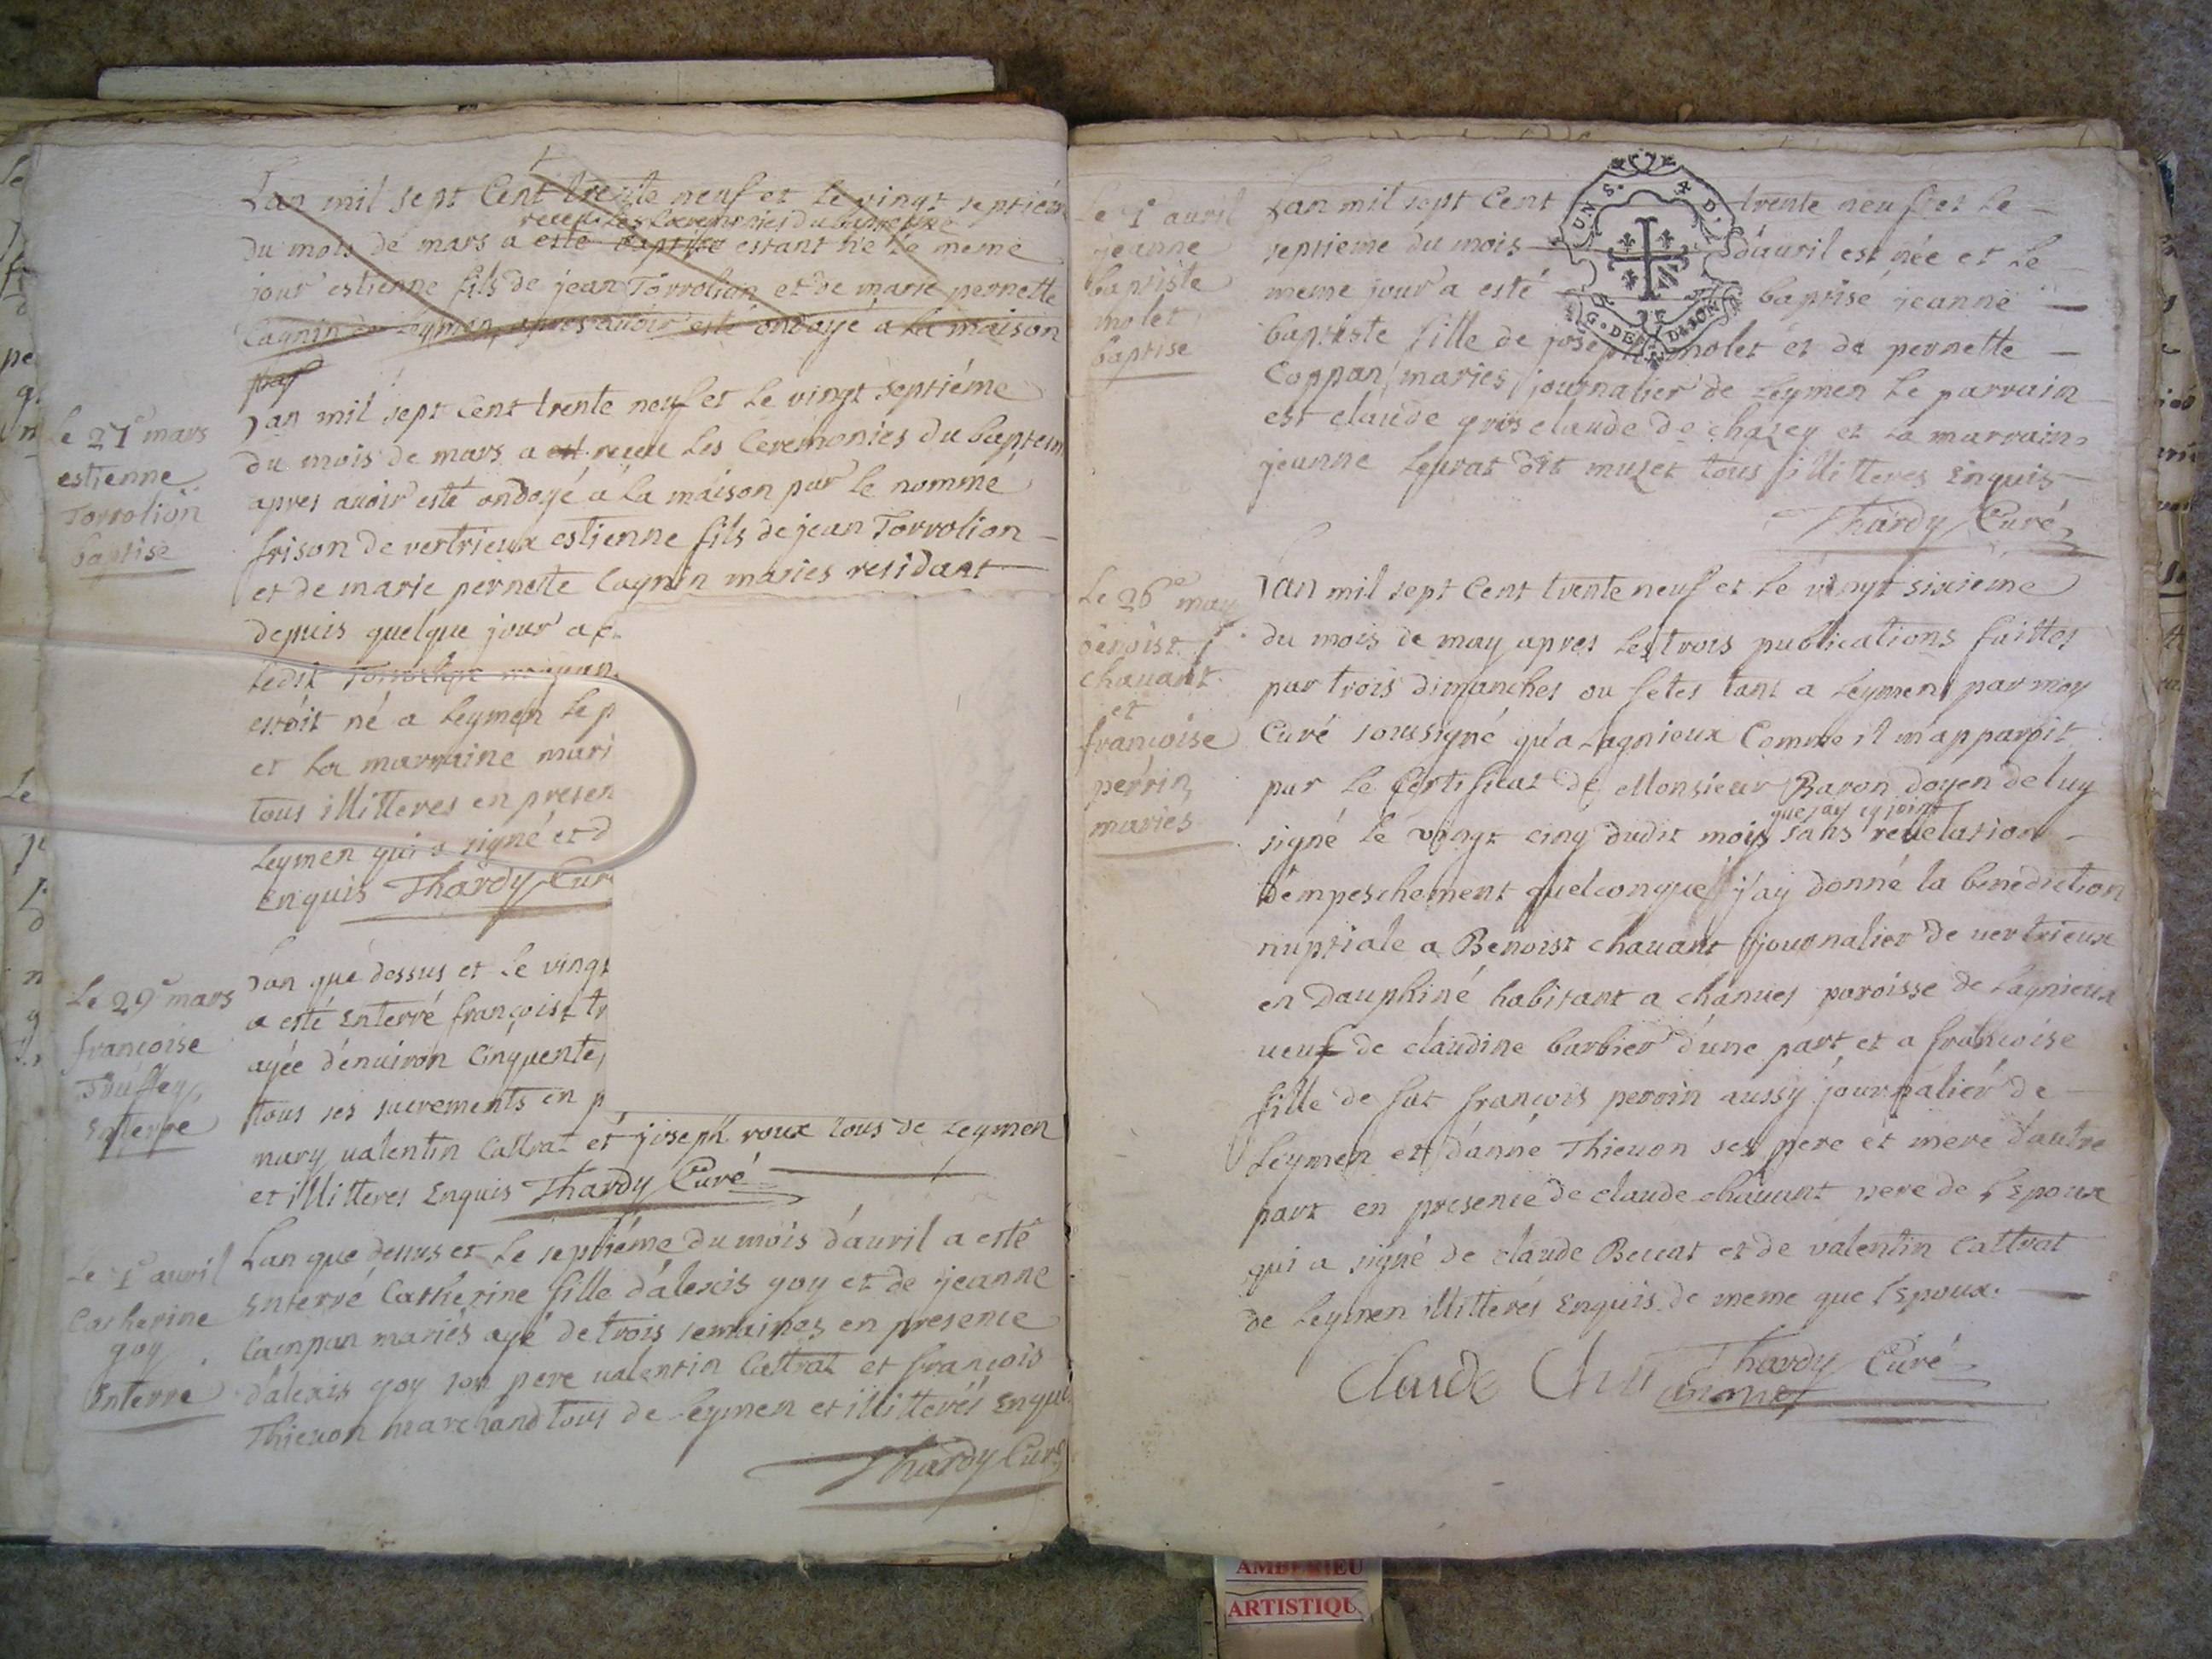 Lan mil sept Cent trente neuf et Le vingt septiém
receu Les Ceremonies du bapteme
du mois de mars a esté baptisé estant né Le meme
jour estienne fils de jean Torrolion et de marie pernette
Cagnin de Leymen, apres avoir esté ondoyé a La maison
par
Le 27e mars
estienne
Torrolion
baptise
Lan mil sept Cent trente neuf et Le vingt septiéme
du mois de mars a est receu Les Ceremonies du baptem
apres avoir esté ondoyé a La maison par Le nommé
frison de vertrieux estienne fils de jean Torrolion
et de marie pernette Cagnin maries residant
depuis quelque jour a
Ledit
estoit né a Leymen Le p
et La marraine mari
tous illitteres en presen
Leymen qui a signé et d
Enquis Thardy Cur
Le 29e mars
françoise
Truffey
Enterre
Lan que dessus et Le vingt
a esté Enterré françoise tr
agée d'environ Cinquente
tous ses sacrements en p
mary valentin Cattrat et joseph roux tous de Leymen
et illitteres Enquis Thardy Curé
Le 7e avril
Catherine
goy
Enterre
Lan que dessus et Le septiéme du mois d'avril a esté
Enterré Catherine fille d'alexis goy et de jeanne
Campan mariés agé de trois semaines en presence
d'alexis goy son pere valentin Cattrat et françois
Thievon marchand tous de Leymen et illitterés Enquis
Thardy Curé
Le 7e avril
jeanne
baptiste
molet
baptise
Lan mil sept Cent trente neuf et Le
septieme du mois d'avril est née et Le
meme jour a esté baptisé jeanne
baptiste fille de joseph molet et de pernette
Coppan maries journalier de Leymen Le parrain
est claude gros claude de chazey et La marraine
jeanne Levrat dit muzet tous illitteres Enquis
Thardy Curé
UN S. X D.
G. DE DIJON
Le 26e may
benoist
chavant
et
françoise
perrin
maries
Lan mil sept Cent trente neuf et Le vingt sixieme
du mois de may apres Les trois publications faittes
par trois dimanches ou fetes tant a Leymen par moy
Curé soussigné qu'a Lagnieux Comme il m'apparoit
par Le Certificat de Monsieur Baron doyen de luy
que j'ay cy joint
signé Le vingt cinq dudit mois sans revelation
d'empeschement quelconque j'ay donné la benediction
nuptiale a Benoist chavant journalier de vertrieux
en Dauphiné habitant a chanves paroisse de Lagnieux
veuf de claudine barbier d'une part et a françoise
fille de fut françois perrin aussy journalier de
Leymen et d'anne Thievon ses pere et mere d'autre
part en presence de claude chavant pere de L'Epoux
qui a signé de claude Beccat et de valentin Cattrat
de Leymen illitterés Enquis de meme que L'Epoux.
Claude Thardy Curé
AMBERIEU
ARTISTIQU